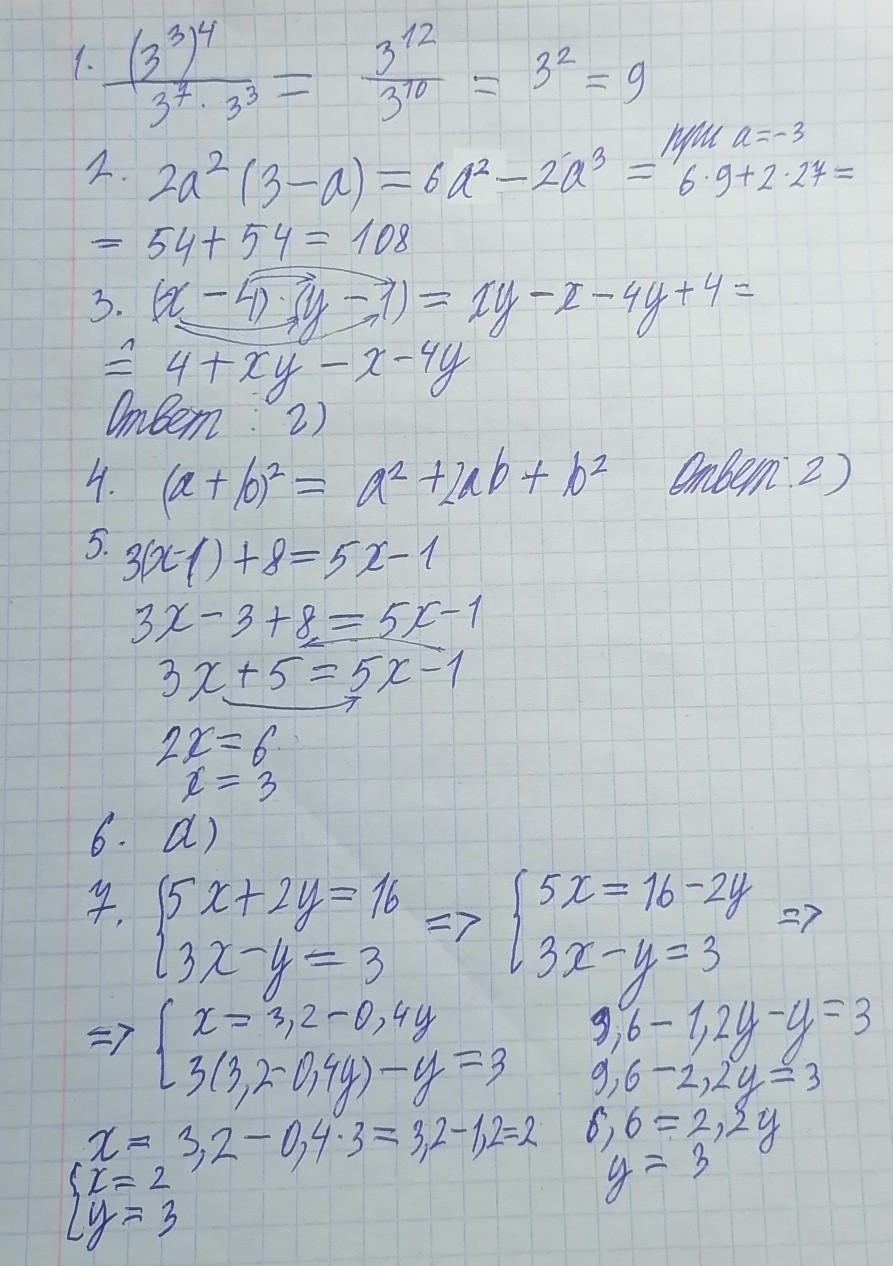 1. (3³)⁴ / 3⁷ · 3³ = 3¹² / 3¹⁰ = 3² = 9
2. 2a² (3 – a) = 6a² – 2a³ = при a = –3 6·9+2·27 =
= 54 + 54 = 108
3. (x – 4) · (y – 1) = xy – x – 4y + 4 =
= 4 + xy – x – 4y
Ответ : 2)
4. (a + b)² = a² + 2ab + b² Ответ: 2)
5. 3(x–1) + 8 = 5x – 1
3x – 3 + 8 = 5x – 1
3x + 5 = 5x – 1
2x = 6
x = 3
6. a)
7. { 5x + 2y = 16 => { 5x = 16 – 2y =>
3x – y = 3 3x – y = 3
=> { x = 3,2 – 0,4y 9,6 – 1,2y – y = 3
3(3,2 – 0,4y) – y = 3 9,6 – 2,2y = 3
x = 3,2 – 0,4·3 = 3,2 – 1,2 = 2 6,6 = 2,2y
{ x = 2 y = 3
y = 3